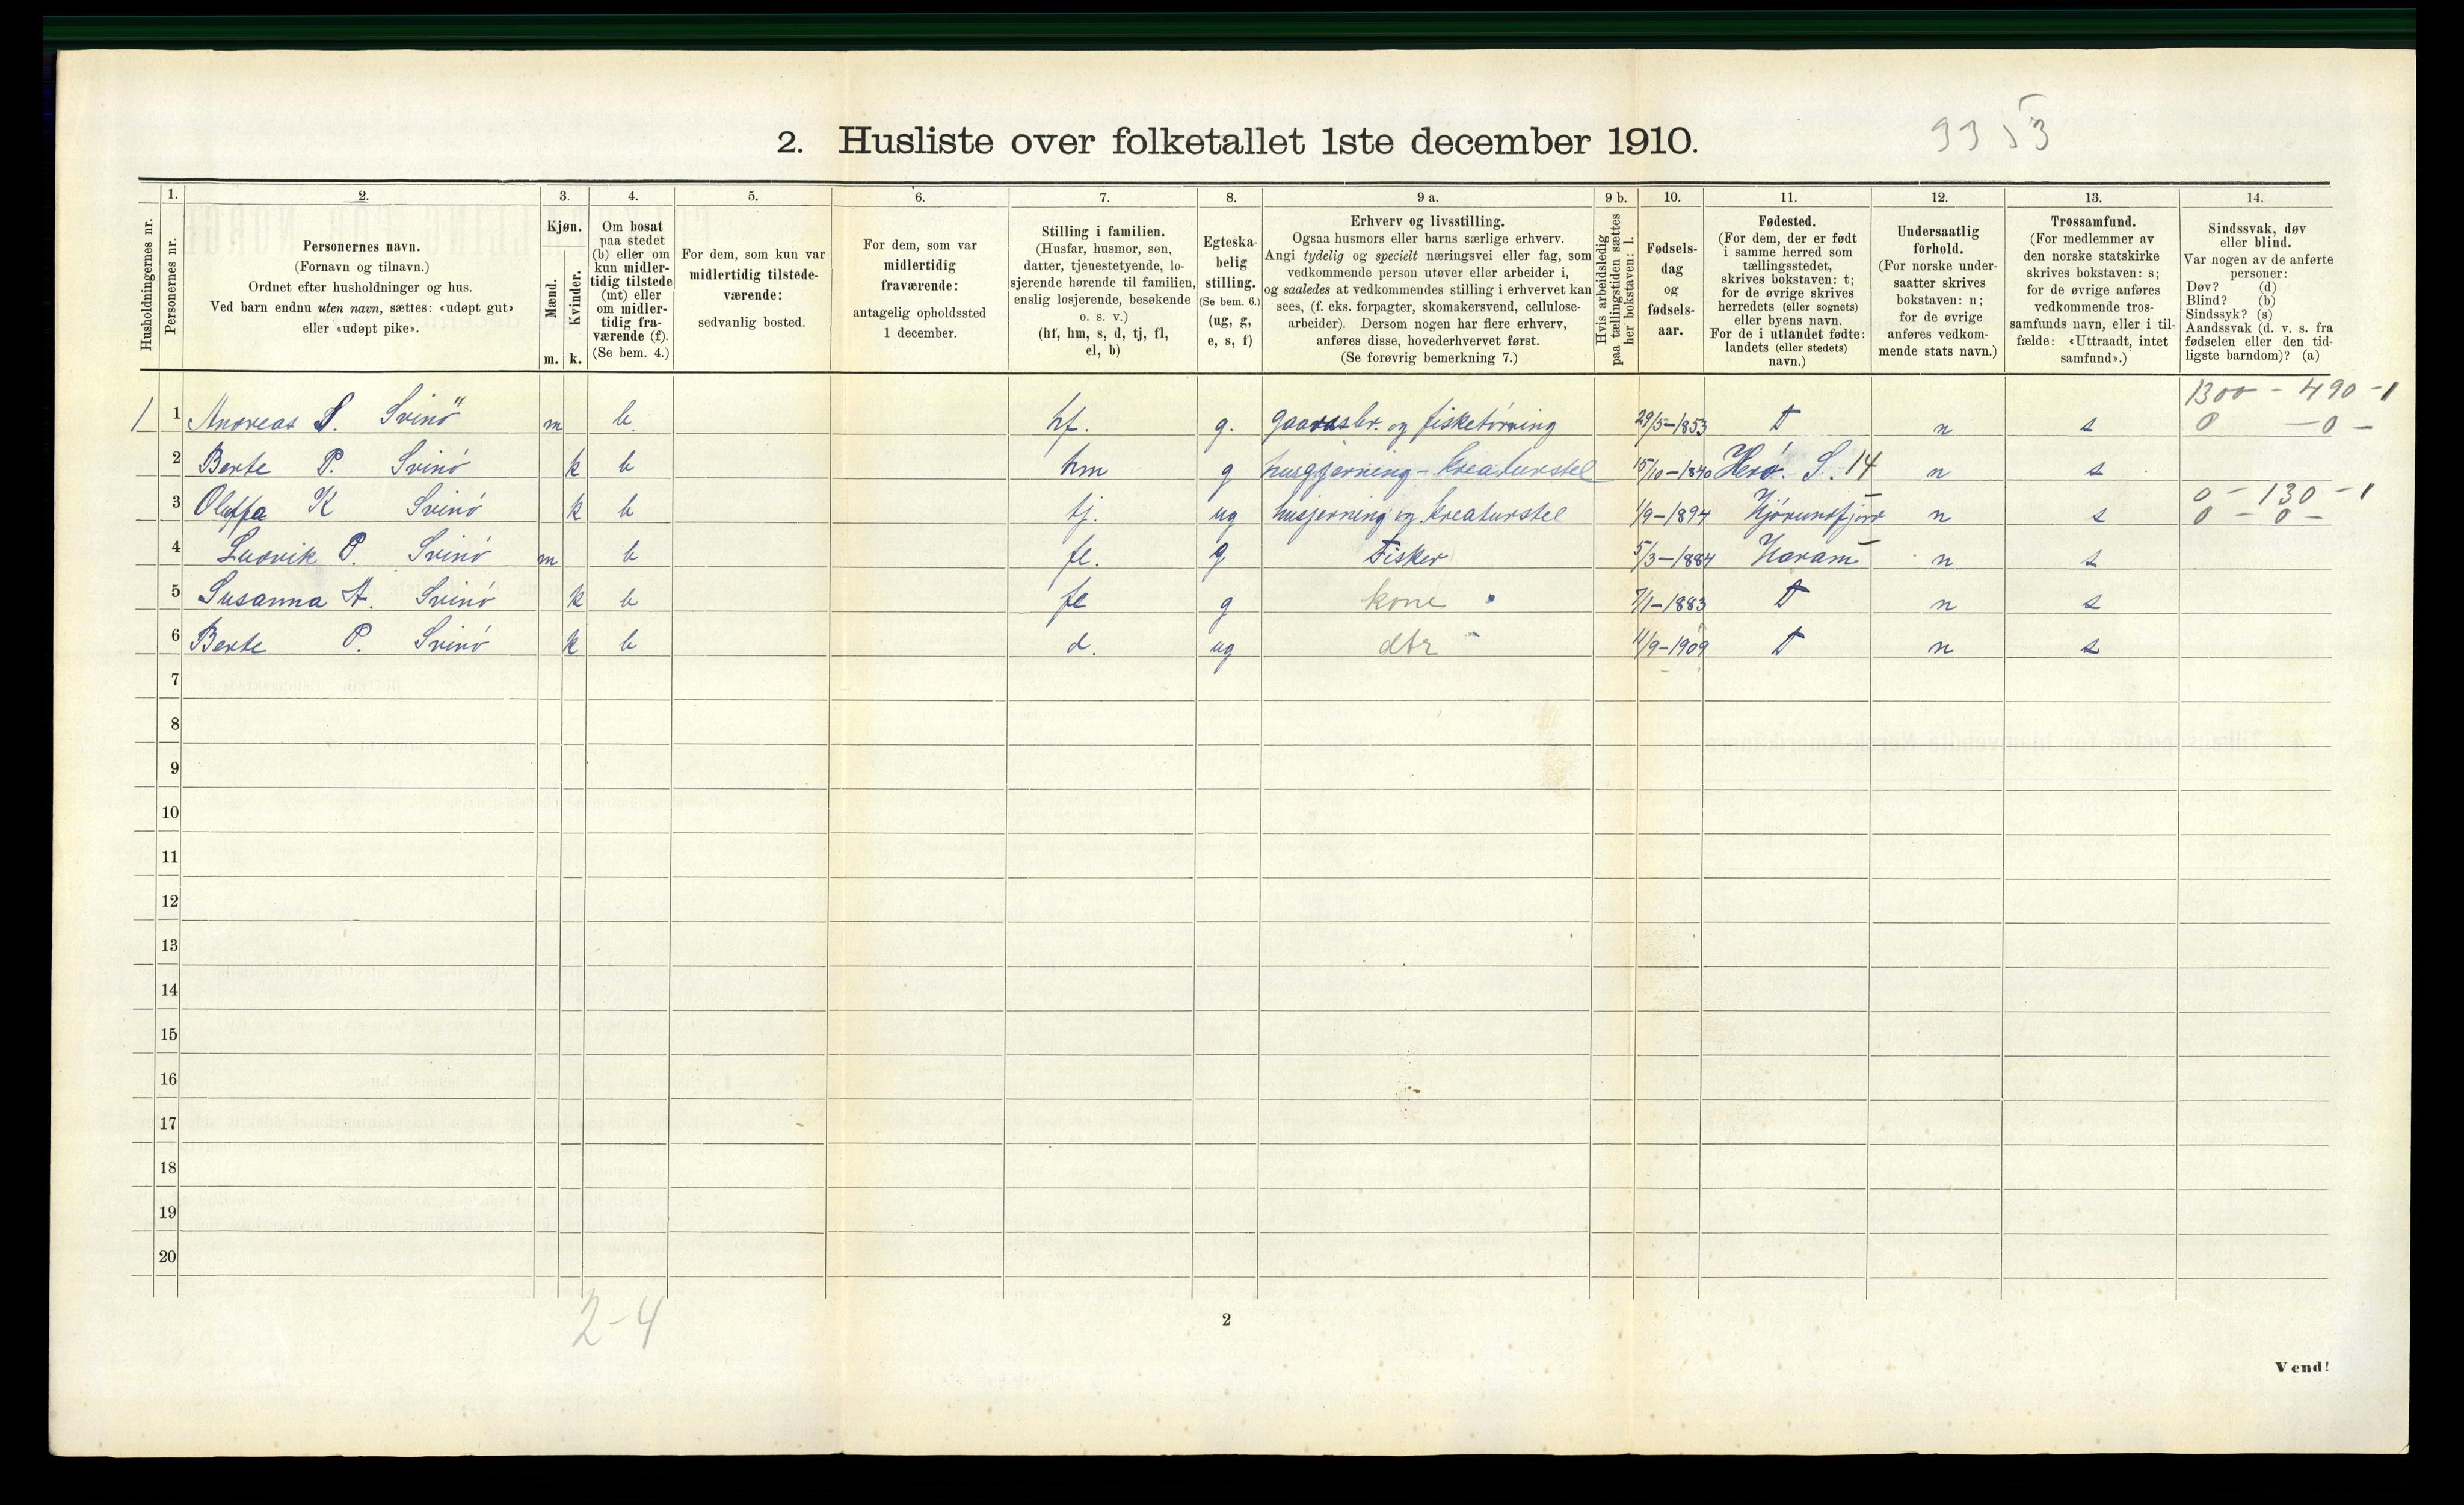 2. Husliste over folketallet 1ste december 1910.
Husholdningernes nr.
1.
Personernes nr.
2.
Personernes navn.
(Fornavn og tilnavn.)
Ordnet efter husholdninger og hus.
Ved barn endnu uten navn, sættes: «udøpt gut»
eller «udøpt pike».
3.
Kjøn.
Mænd.
m.
Kvinder.
k.
4.
Om bosat
paa stedet
(b) eller om
kun midler-
tidig tilstede
(mt) eller
om midler-
tidig fra-
værende (f).
(Se bem. 4.)
5.
For dem, som kun var
midlertidig tilstede-
værende:
sedvanlig bosted.
6.
For dem, som var
midlertidig
fraværende:
antagelig opholdssted
1 december.
7.
Stilling i familien.
(Husfar, husmor, søn,
datter, tjenestetyende, lo-
sjerende hørende til familien,
enslig losjerende, besøkende
o. s. v.)
(hf, hm, s, d, tj, fl,
el, b)
8.
Egteska-
belig
stilling.
(Se bem. 6.)
(ug, g,
e, s, f)
9 a.
Erhverv og livsstilling.
Ogsaa husmors eller barns særlige erhverv.
Angi tydelig og specielt næringsvei eller fag, som
vedkommende person utøver eller arbeider i,
og saaledes at vedkommendes stilling i erhvervet kan
sees, (f. eks. forpagter, skomakersvend, cellulose-
arbeider). Dersom nogen har flere erhverv,
anføres disse, hovederhvervet først.
(Se forøvrig bemerkning 7.)
9 b.
Hvis arbeidsledig
paa tællingstiden sættes
her bokstaven: l.
10.
Fødsels-
dag
og
fødsels-
aar.
11.
Fødested.
(For dem, der er født
i samme herred som
tællingsstedet,
skrives bokstaven: t;
for de øvrige skrives
herredets (eller sognets)
eller byens navn.
For de i utlandet fødte:
landets (eller stedets)
navn.)
12.
Undersaatlig
forhold.
(For norske under-
saatter skrives
bokstaven: n;
for de øvrige
anføres vedkom-
mende stats navn.)
13.
Trossamfund.
(For medlemmer av
den norske statskirke
skrives bokstaven: s;
for de øvrige anføres
vedkommende tros-
samfunds navn, eller i til-
fælde: «Uttraadt, intet
samfund».)
14.
Sindssvak, døv
eller blind.
Var nogen av de anførte
personer:
Døv? (d)
Blind? (b)
Sindssyk? (s)
Aandssvak (d. v. s. fra
fødselen eller den tid-
ligste barndom)? (a)
1300 - 490 - 1
1 1 Andreas S. Svinö m b hf. g. gaardsbr. og fisketörving 29/5-1853 t n s 0 - 0 -
2 Berte P. Svinö k b hm g husgjerning - kreaturstel 15/10-1840 Herö. S. 14 n s
0 - 130 - 1
3 K Svinö k b tj. ug husjerning og kreaturstel 1/9-1894 Hjörundfjord n s 0 - 0 -
4 Ludvik P. Svinö m b fl. g Fisker 5/3-1884 Haram n s
5 Susanna A. Svinö k b fl g kone " 7/1-1883 t n s
6 Berte P. Svinö k b d. ug dtr " 11/9-1909 t n s
7
8
9
10
11
12
13
14
15
16
17
18
19
20
2-4
2
Vend!